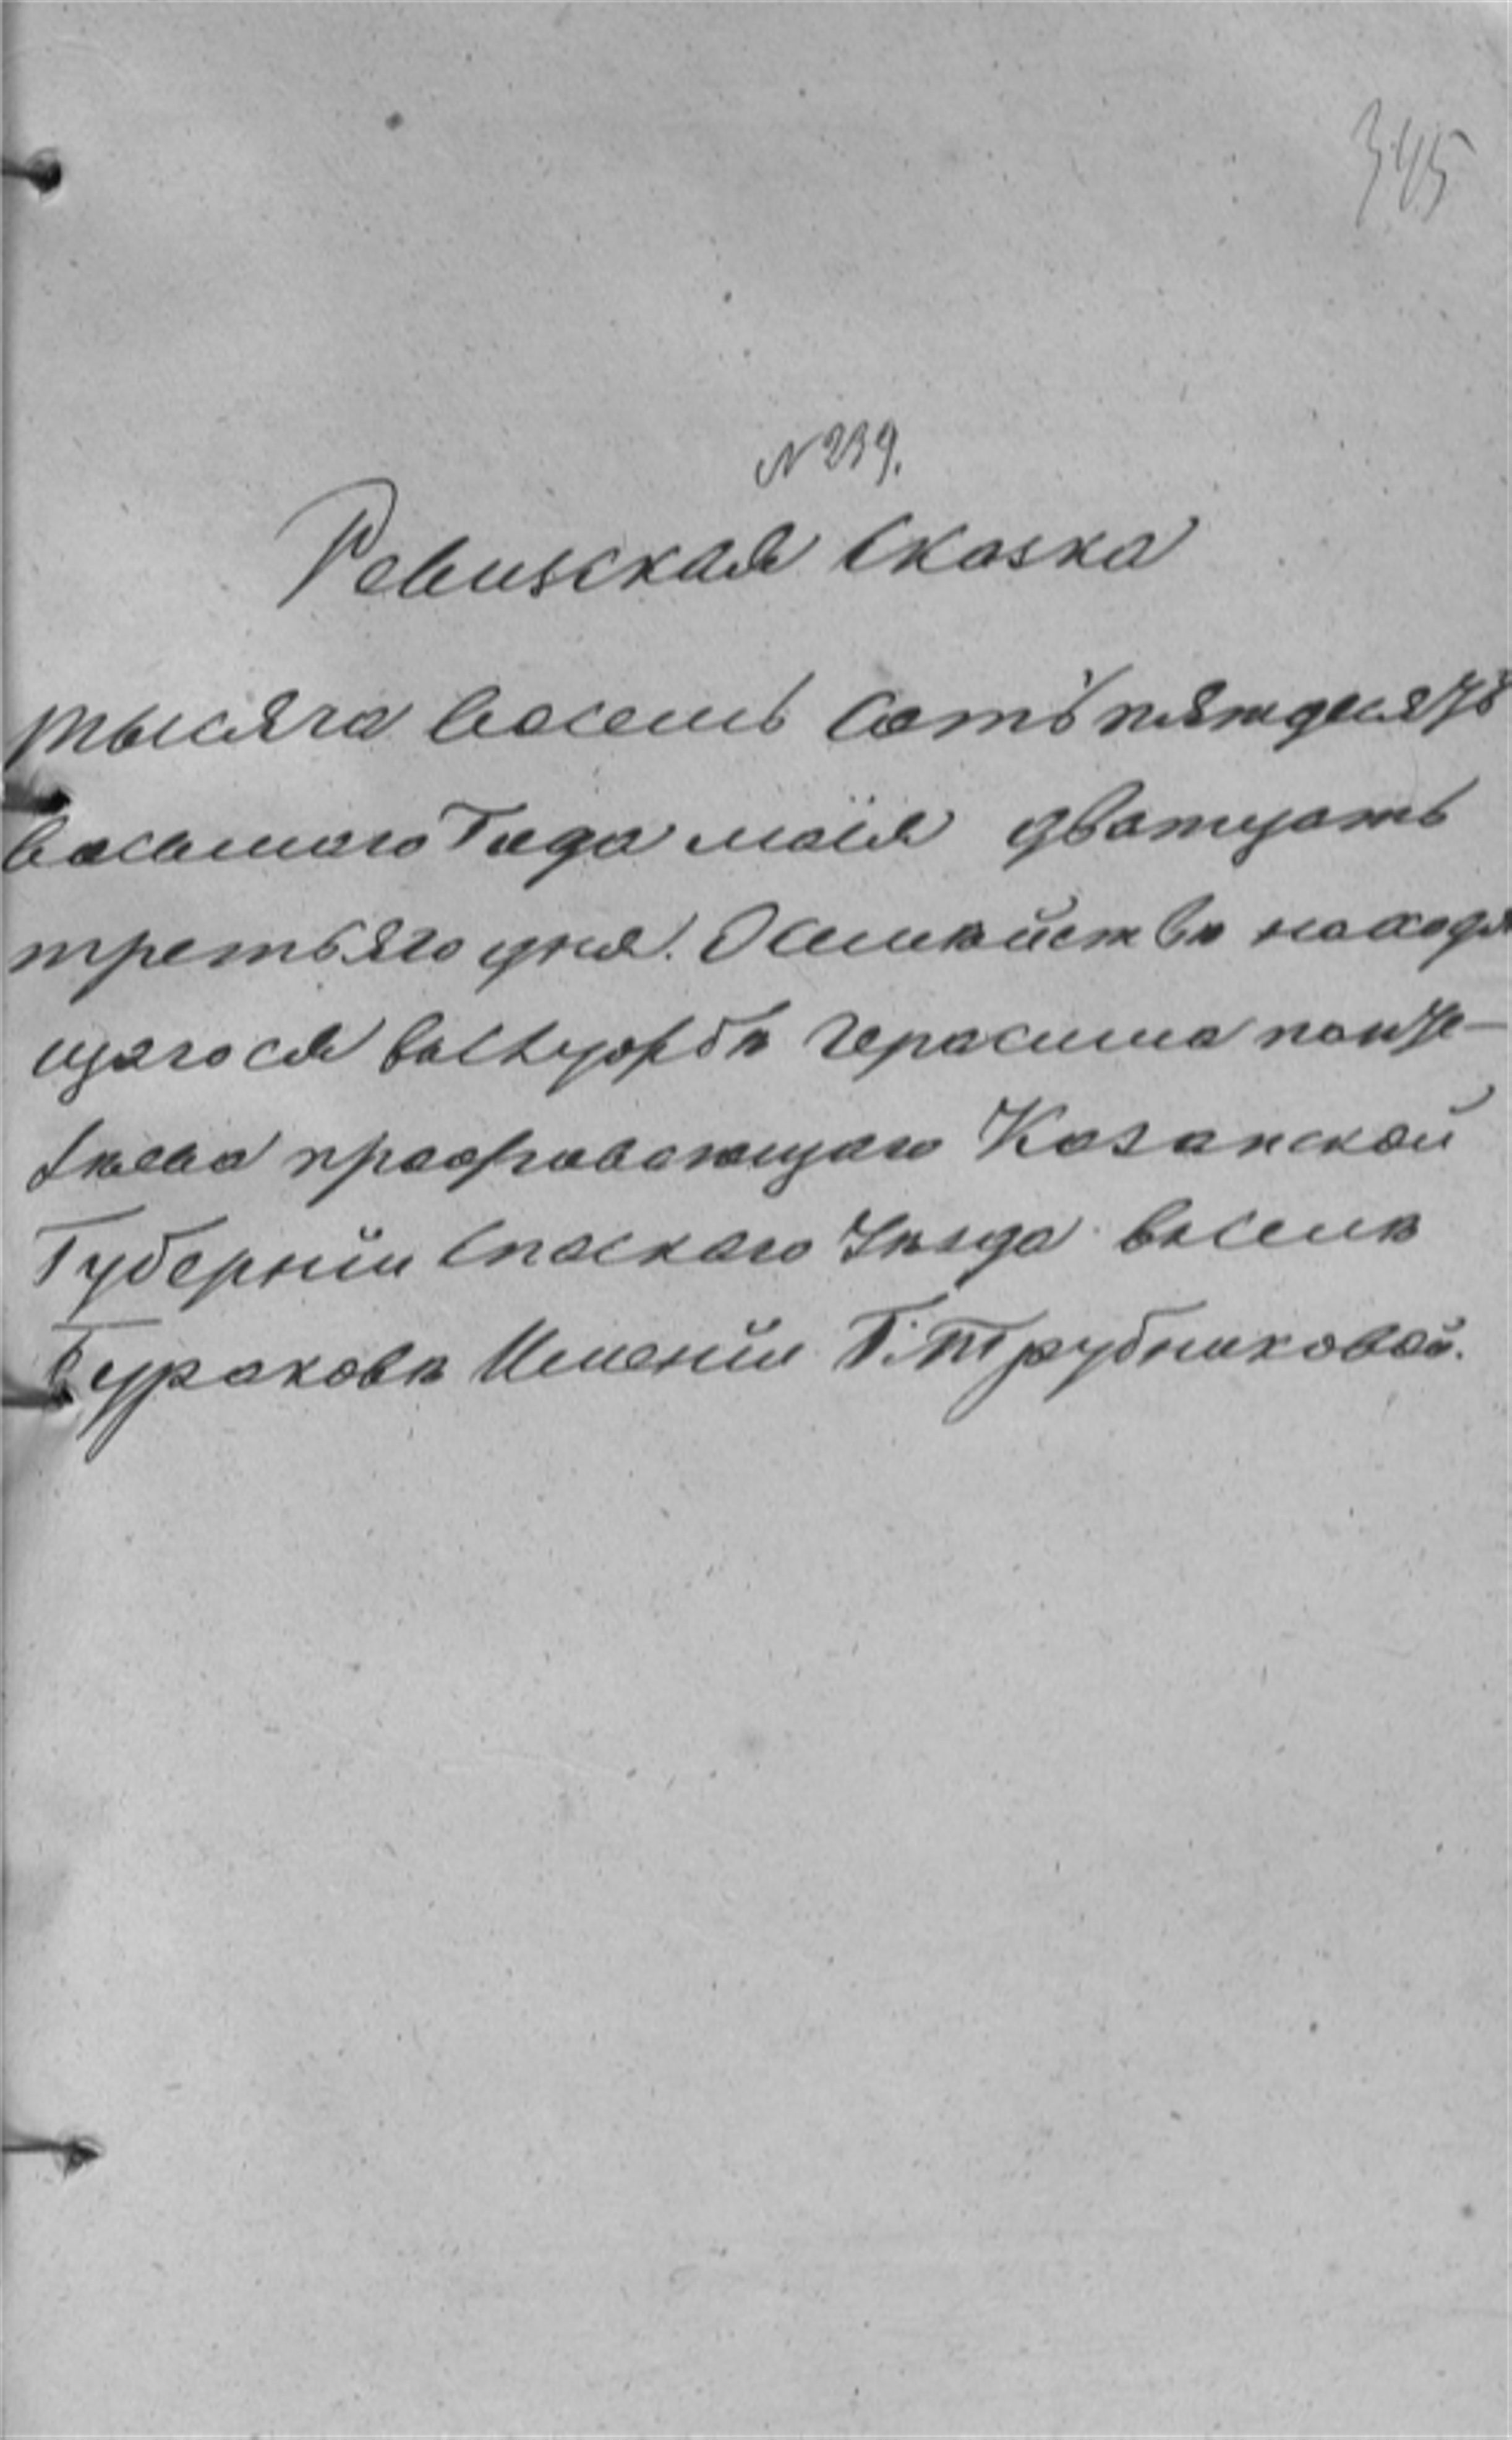 345
№ 239.
Ревизская Сказка
тысяча восемь сотъ пятдесятъ
восьмаго Года маія дватцать
третьяго дня. О семѣйствѣ находя
щагося Герасима
проживающаго Казанской
Губерніи Спаскаго Уѣзда вселѣ
Бураковѣ Именіи Г. Трубниковой.